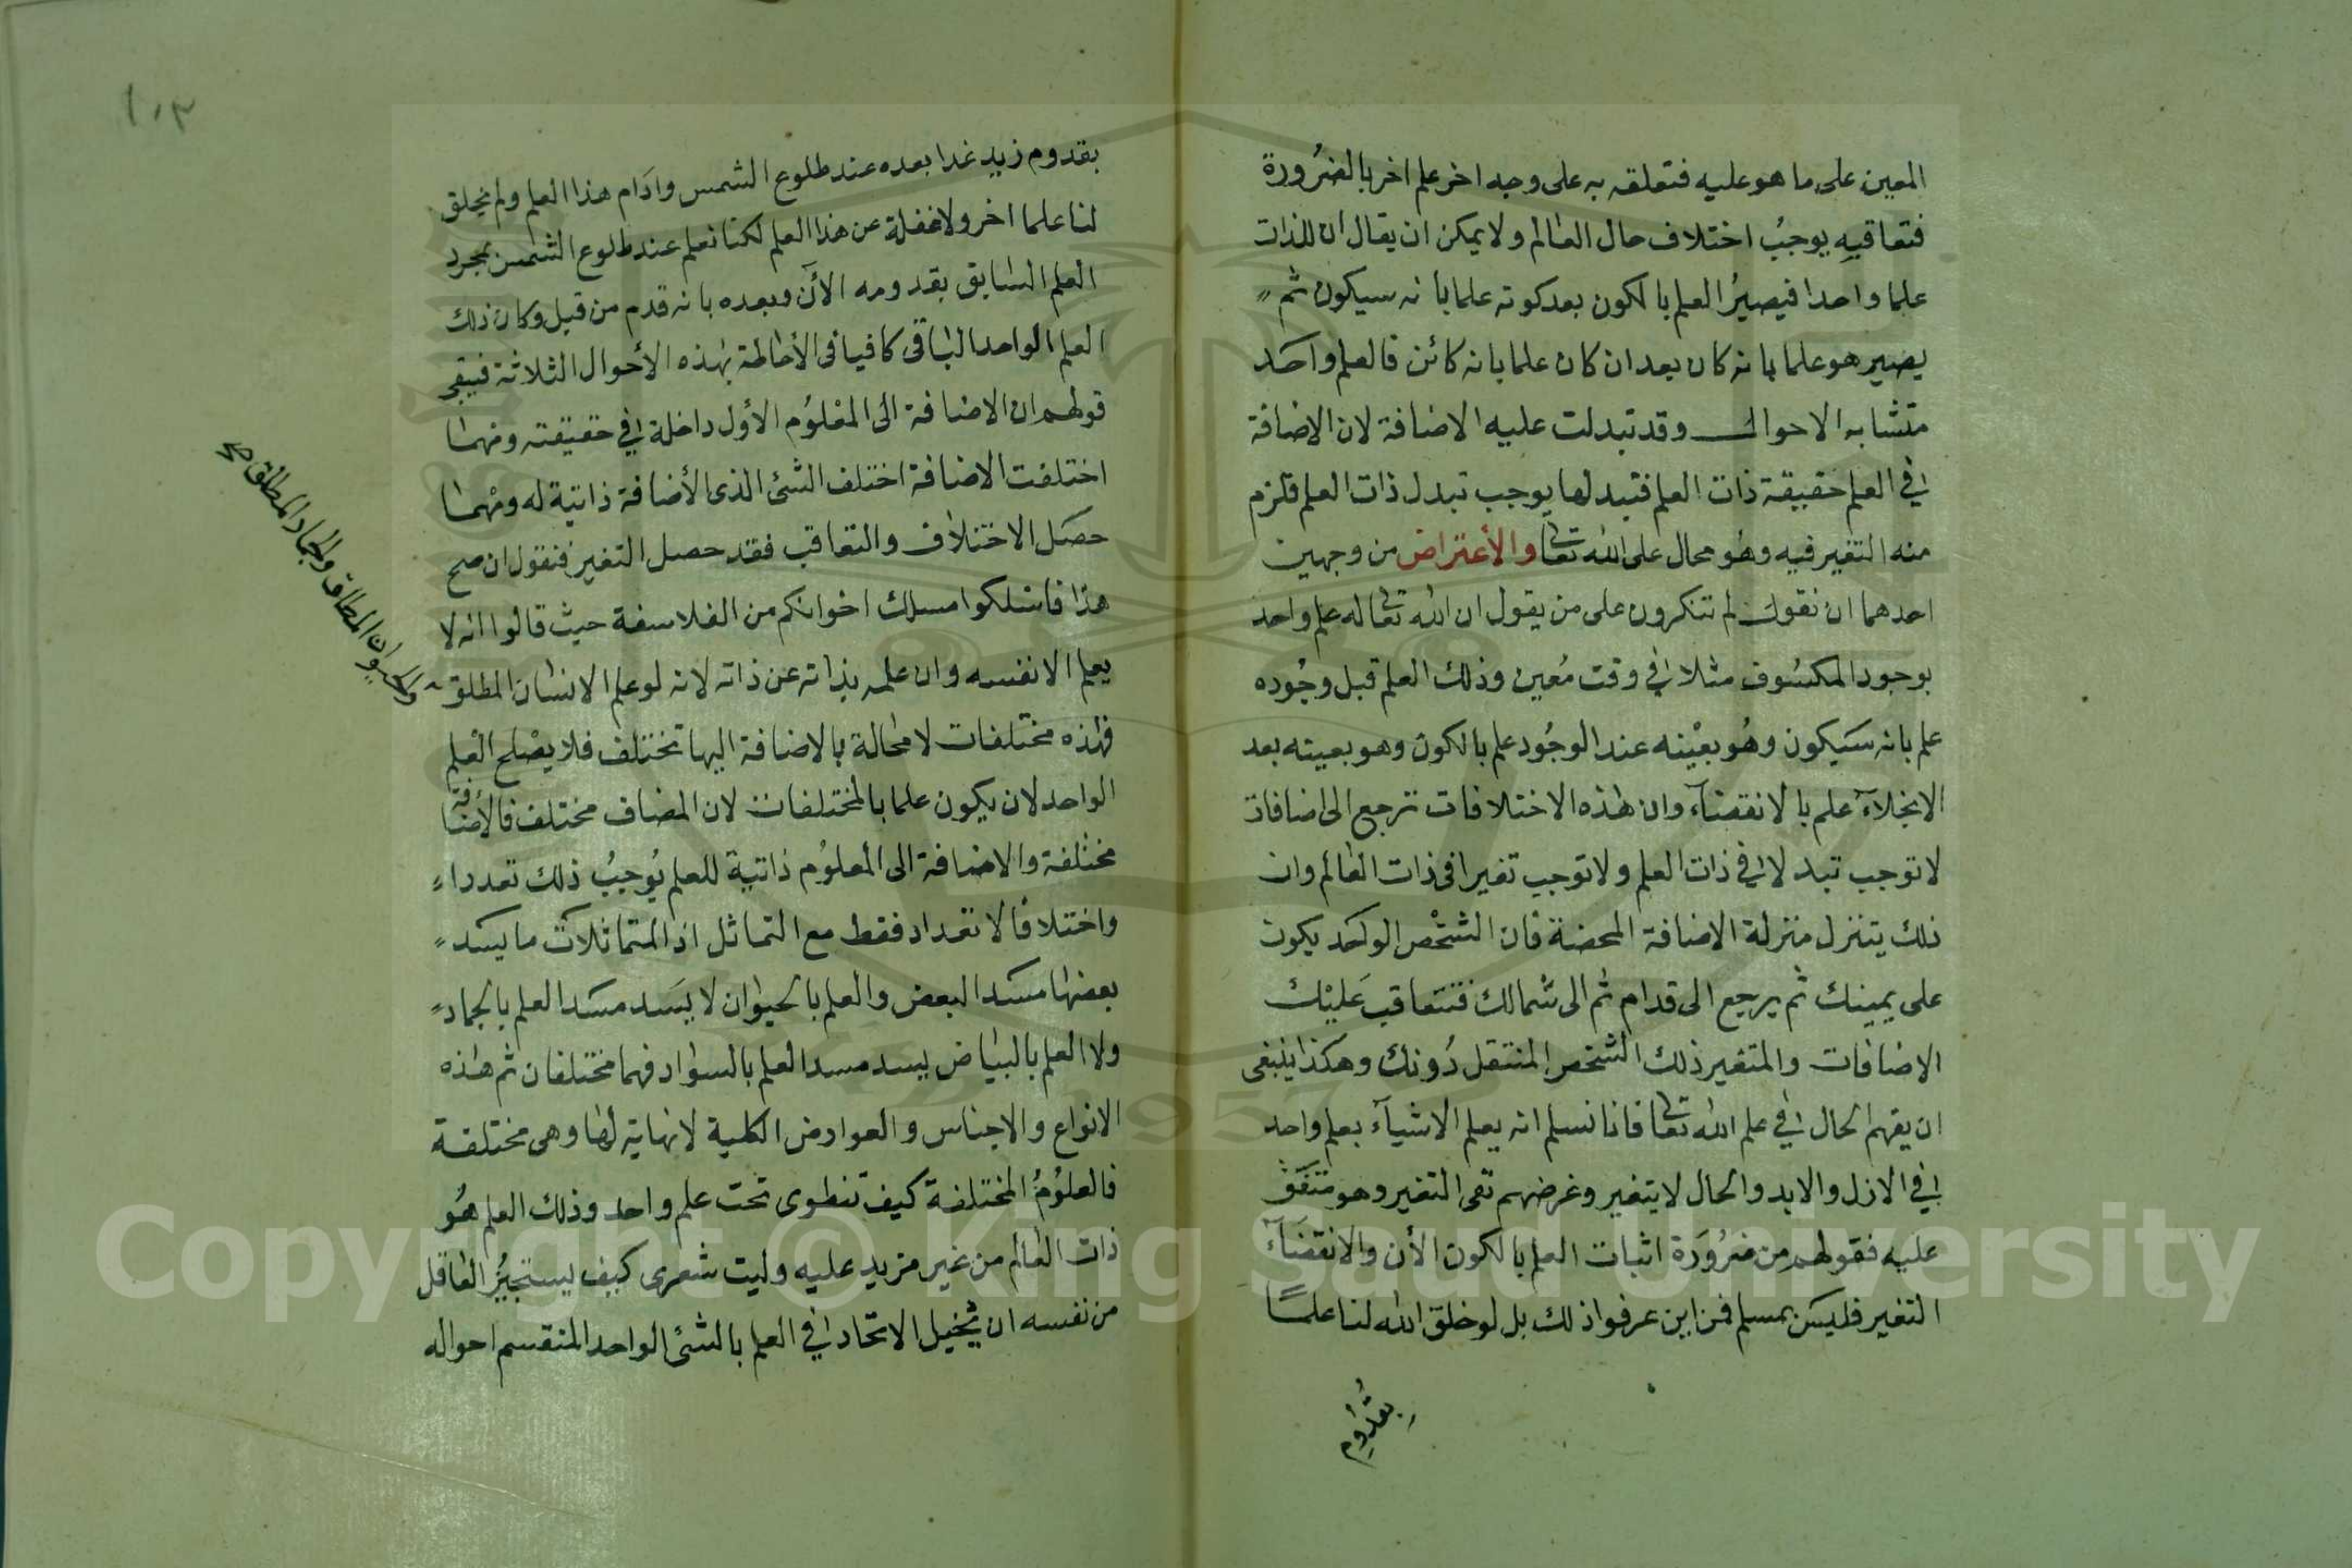 المعين على ما هو عليه فتعلقه به على وجه اخر علم اخر بالضرورة
فتعاقبه يوجب اختلاف حال العالم ولا يمكن ان يقال ان للذات
علما واحدا فيصير العلم بالكون بعد كونه علما بانه سيكون ثم
يصير هو علما بانه كان بعد ان كان علما بانه كائن فالعلم واحد
متشابه الاحوال وقد تبدلت عليه الاضافة لان الاضافة
في العلم حقيقة ذات العلم فتبدلها يوجب تبدل ذات العلم فلزم
منه التغير فيه وهو محال على الله تعالى والأعتراض من وجهين
احدهما ان نقول لم تنكرون على من يقول ان الله تعالى له علم واحد
بوجود الكسوف مثلا في وقت معين وذلك العلم قبل وجوده
علم بانه سيكون وهو بعينه عند الوجود علم بالكون وهو بعينه بعد
الانجلاء علم بالانقضاء وان هذه الاختلافات ترجع الى اضافات
لا توجب تبدلا في ذات العلم ولا توجب تغيرا في ذات العالم وان
ذلك يتنزل منزلة الاضافة المحضة فان الشخص الواحد يكون
على يمينك ثم يرجع الى قدام ثم الى شمالك فتتعاقب عليك
الاضافات والمتغير ذلك الشخص المنتقل دونك وهكذا ينبغى
ان يفهم الحال في علم الله تعالى فانا نسلم انه يعلم الاشياء بعلم واحد
في الازل والابد والحال لا يتغير وغرضهم نفى التغير وهو متفق
عليه فقولهم من ضرورة اثبات العلم بالكون الأن والانقضاء
التغير فليس بمسلم فمن اين عرفوا ذلك بل لو خلق الله لنا علما
بقدوم
١٠٣
بقدوم زيد غدا بعده عند طلوع الشمس وادام هذا العلم ولم يخلق
لنا علما اخر ولا غفلة عن هذا العلم لكنا نعلم عند طلوع الشمس بمجرد
العلم السابق بقدومه الآن وبعده بانه قدم من قبل وكان ذلك
العلم الواحد الباقى كافيا فى الأحاطة بهذه الأحوال الثلاثة فيبقى
قولهم ان الاضافة الى المعلوم الأول داخلة في حقيقته ومهما
اختلفت الاضافة اختلف الشئ الذى الأضافة ذاتية له ومهما
حصل الاختلاف والتعاقب فقد حصل التغير فنقول ان صح
هذا فاسلكوا مسلك اخوانكم من الفلاسفة حيث قالوا انه لا
يعلم الا نفسه وان علمه بذاته عن ذاته لانه لو علم الانسان المطلق
والحيوان المطلق والجماد المطلق صح
فهذه مختلفات لا محالة بالاضافة اليها تختلف فلا يصلح العلم
الواحد لان يكون علما بالمختلفات لان المضاف مختلف فالأضافة
مختلفة والاضافة الى المعلوم ذاتية للعلم يوجب ذلك تعددا
واختلافا لا تعداد فقط مع التماثل اذ المتماثلات ما يسد
بعضها مسد البعض والعلم بالحيوان لا يسد مسد العلم بالجماد
ولا العلم بالبياض يسد مسد العلم بالسواد فهما مختلفان ثم هذه
الانواع والاجناس والعوارض الكلية لا نهاية لها وهى مختلفة
فالعلوم المختلفة كيف تنطوى تحت علم واحد وذلك العلم هو
ذات العالم من غير مزيد عليه وليت شعرى كيف يستجيز العاقل
من نفسه ان يحيل الاتحاد في العلم بالشئ الواحد المنقسم احواله
Copyright © King Saud University
1957